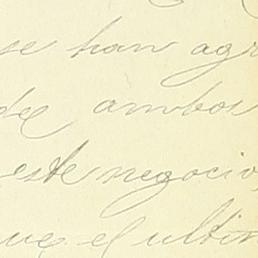 se han agr
de ambos
este negocio,
que el ultim